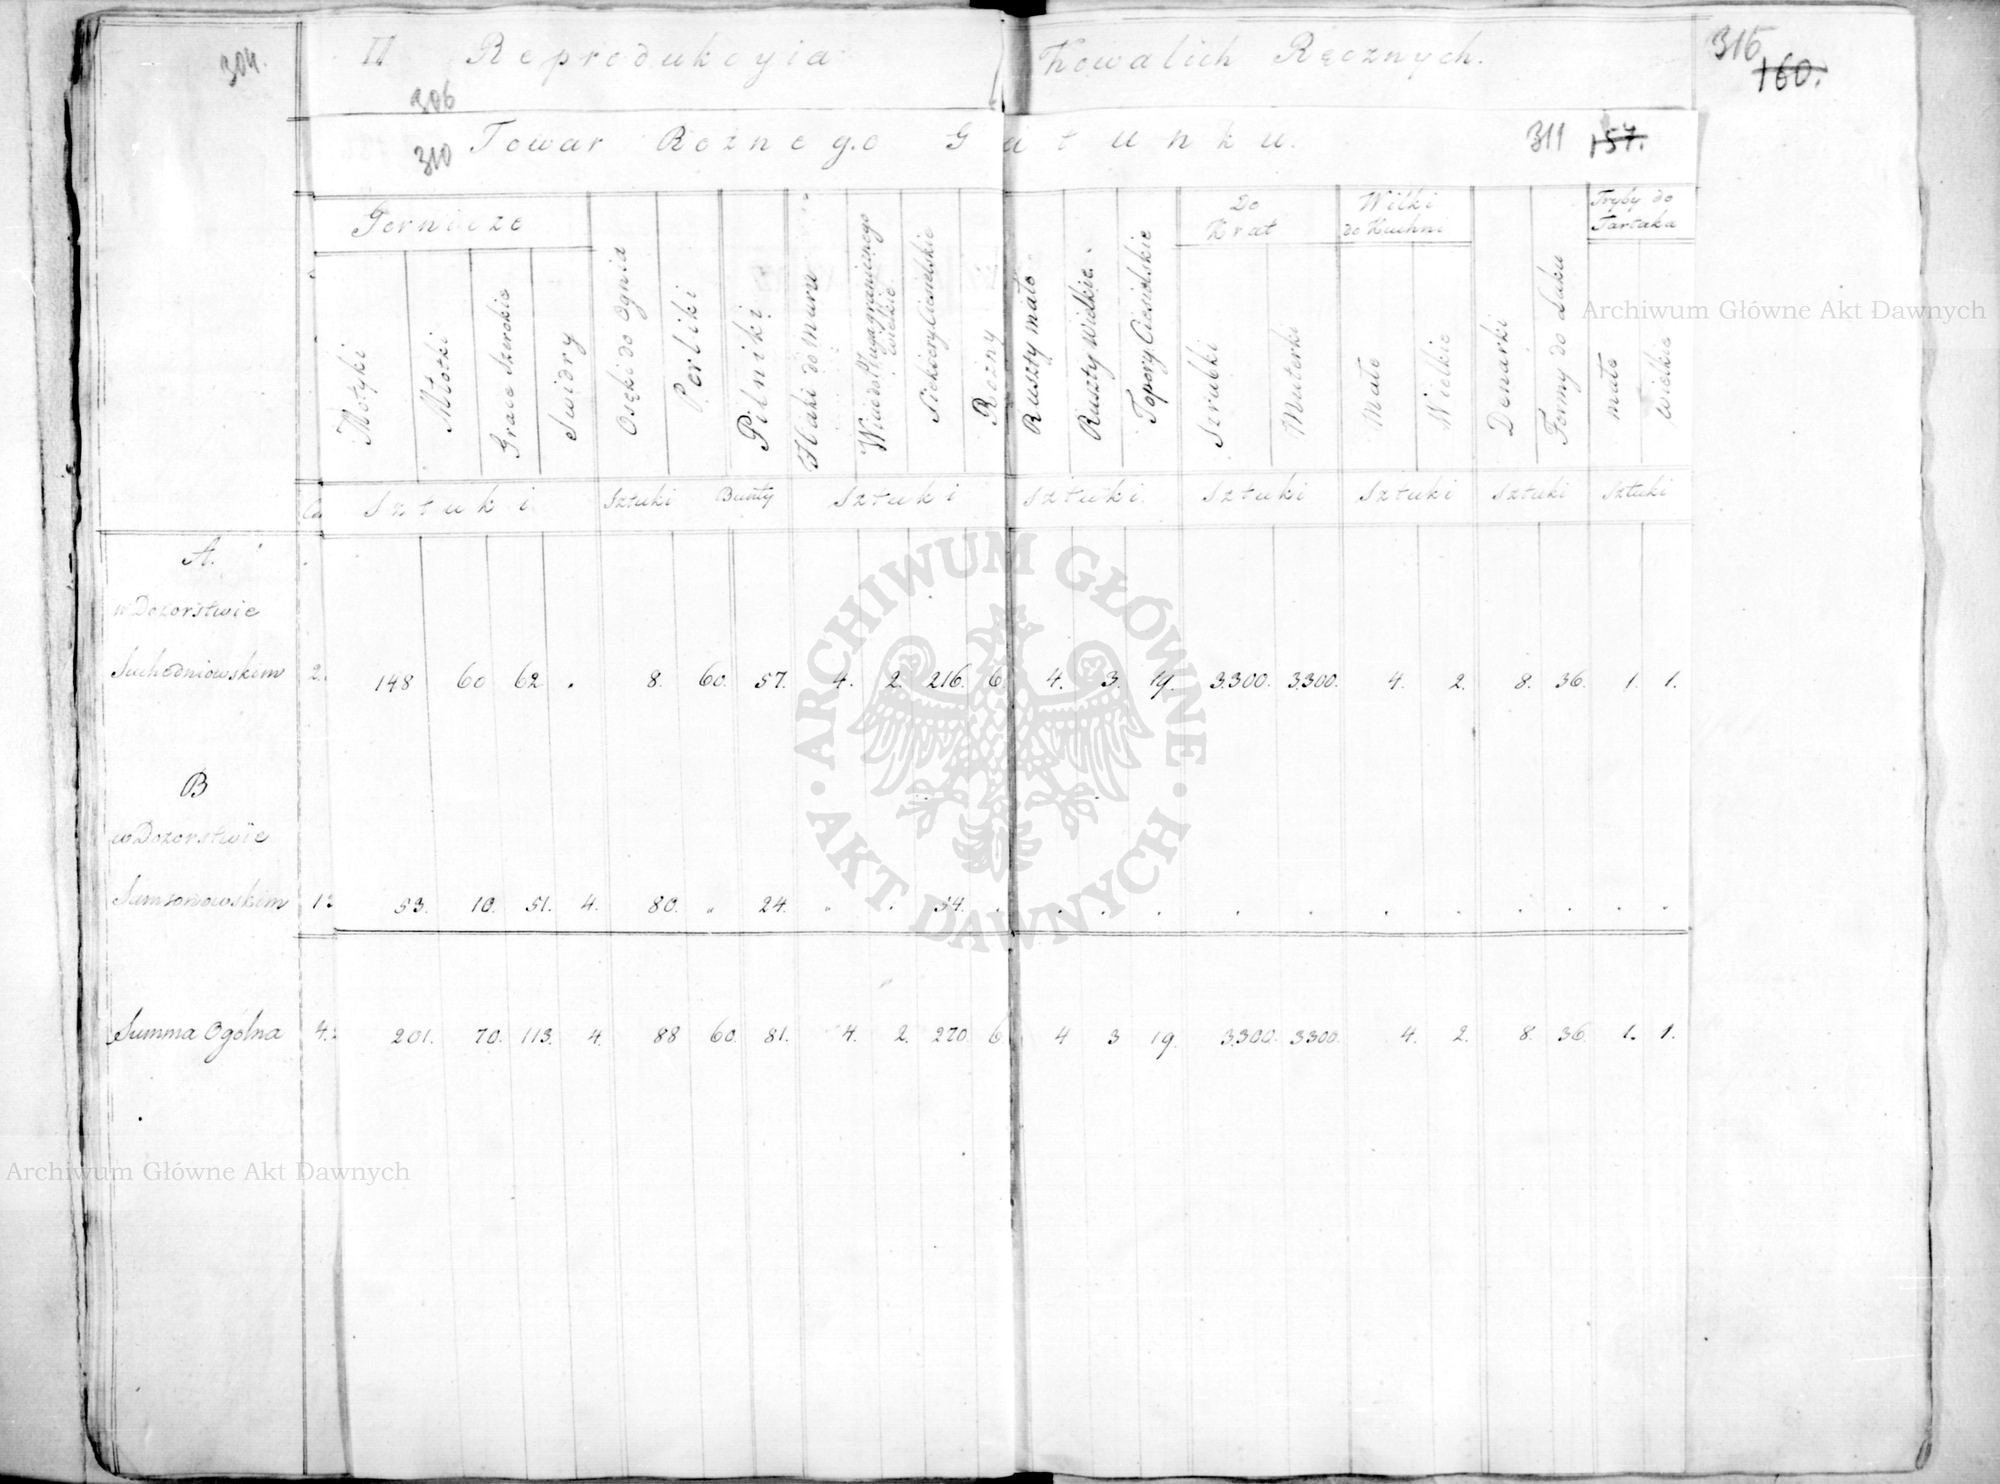 304.
II Reprodukcyia Kowalich Ręcznych.
315
160.
306
Towar Roznego Gatunku.
310
311 157.
Gornicze
Do Krat
Wilki do Kuchni
Tryby do Tartaka
Motyki
Młotki
Grace Szerokie
Swidry
Osęki do Ognia
Perliki
Pilniki
Haki do Muru
wielkie
Siekiery Ciesielskie
Rożny
Ruszty małe
Ruszty Wielkie
Topory Ciesielskie
Szrubki
Muterki
Małe
Wielkie
Denarki
Formy do Laku
małe
wielkie
Sztuki Sztuki Bunty Sztuki Sztuki Sztuki Sztuki Sztuki Sztuki
A.
w Dozorstwie
Suchedniowskim 2. 148 60 62 . 8. 60. 57. 4. 2. 216. 6 4. 3. 19. 3300. 3300. 4. 2. 8. 36. 1. 1.
B
w Dozorstwie
Samsonowskim 53. 10. 51. 4. 80. „ 24. . . 54. . . . . . . . . . . . .
Summa Ogólna 4. 201. 70. 113. 4. 88 60. 81. 4. 2. 270. 6 4 3 19. 3300. 3300. 4. 2. 8. 36. 1. 1.
Archiwum Główne Akt Dawnych
ARCHIWUM GŁÓWNE AKT DAWNYCH
Archiwum Główne Akt Dawnych